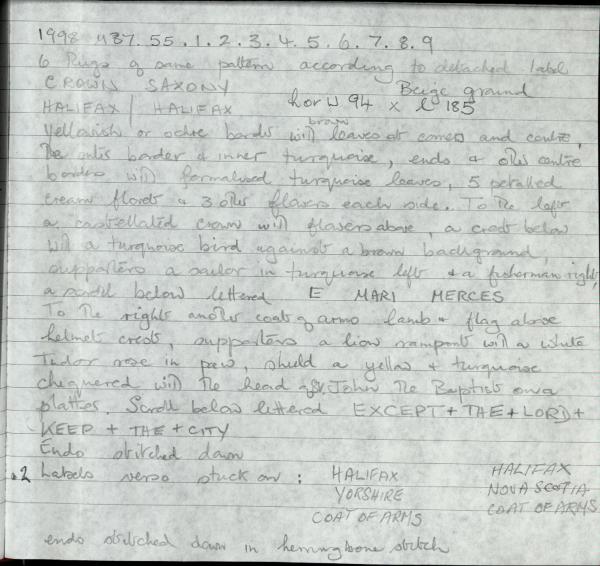 1998 437.55.1.2.3.4.5.6.7.8.9
6 Rugs of same pattern according to detached label
CROWN SAXONY Beige ground
HALIFAX | HALIFAX h or W 94 x l 185
Yellowish or ochre border with brown leaves at corners and centre,
The outer border & inner turquoise, ends & other centre
borders with formalised turquoise leaves, 5 petalled
cream florets & 3 other flowers each side. To the left
a castellated crown with flowers above, a crest below
with a turquoise bird against a brown background,
supporters a sailor in turquoise left & a fisherman right,
a scroll below lettered E MARI MERCES
To the right another coat of arms lamb & flag above
helmet crest, supporters a lion rampant with a white
Tudor rose in paw, shield a yellow & turquoise
chequered with the head of St. John The Baptist on a
platter. Scroll below lettered EXCEPT + THE + LORD +
KEEP + THE + CITY
Ends stitched down
.2 Labels verso stuck on : HALIFAX HALIFAX
YORSHIRE NOVA SCOTIA
COAT OF ARMS COAT OF ARMS
ends stitched down in herringbone stitch